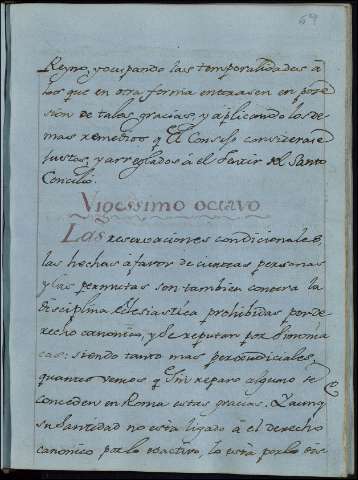 69
Reyno, y ocupando las temporalidades à
los que en otra forma entrasen en pose
sion de tales gracias, y aplicando los de
mas remedios q̃ el Consejo considerare
justos, y arreglados à el sentir del Santo
Concilio.
Vigessimo octavo
Las reservaciones condicionales,
las hechas a favor de ciertas personas
y las permutas son tambien contra la
disciplina Eclesiastica prohibidas por de
recho canonico, y se reputan por Simonia
cas: siendo tanto mas perjudiciales,
quanto vemos q̃ sin reparo alguno se
conceden en Roma estas gracias. Y aunq̃
su Santidad no està ligado à el derecho
canonico por lo coactivo, lo està por lo dis